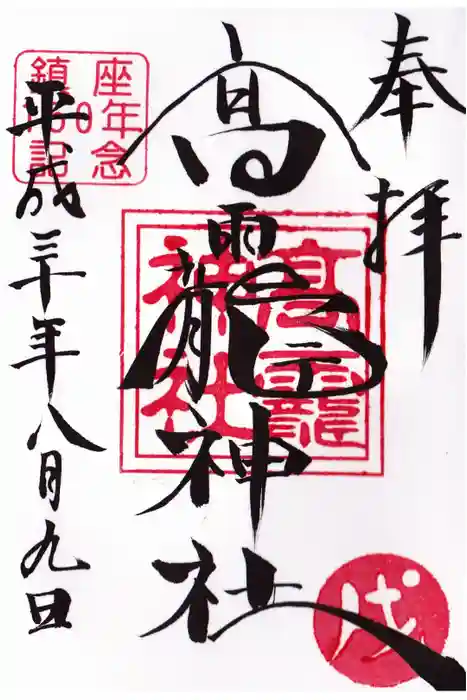 奉拝
高龗神社
平成三十年八月九日
高龗神社
戌